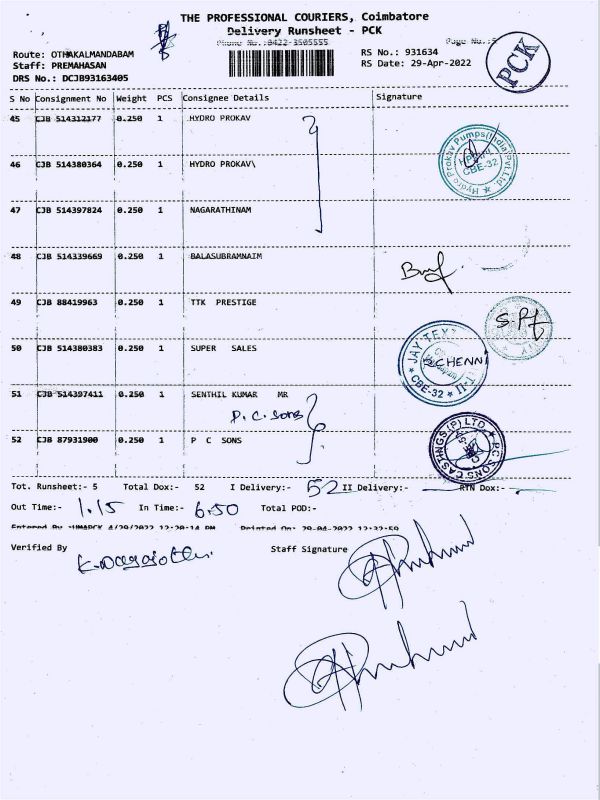 THE PROFESSIONAL COURIERS, Coimbatore
Delivery Runsheet - PCK
Phone No.:0422-3505555 Page No.:5
PCK
Route: OTHAKALMANDABAM RS No.: 931634
Staff: PREMAHASAN RS Date: 29-Apr-2022
DRS No.: DCJB93163405
S No Consignment No Weight PCS Consignee Details Signature
45 CJB 514312177 0.250 1 HYDRO PROKAV
Hydro Prokav Pumps(India)Pvt.Ltd. CBE-32
46 CJB 514380364 0.250 1 HYDRO PROKAV\
47 CJB 514397824 0.250 1 NAGARATHINAM
48 CJB 514339669 0.250 1 BALASUBRAMNAIM
49 CJB 88419963 0.250 1 TTK PRESTIGE
50 CJB 514380383 0.250 1 SUPER SALES
JAY TEX CBE-32
51 CJB 514397411 0.250 1 SENTHIL KUMAR MR
P.C. Sons
52 CJB 87931900 0.250 1 P C SONS
PC SONS CASTINGS (P) LTD
Tot. Runsheet:- 5 Total Dox:- 52 I Delivery:- 52 II Delivery:- RTN Dox:-
Out Time:- 1.15 In Time:- 6.50 Total POD:-
Entered By 4/29/2022 12:20:14 PM Printed On: 29-04-2022 12:32:59
Verified By Staff Signature